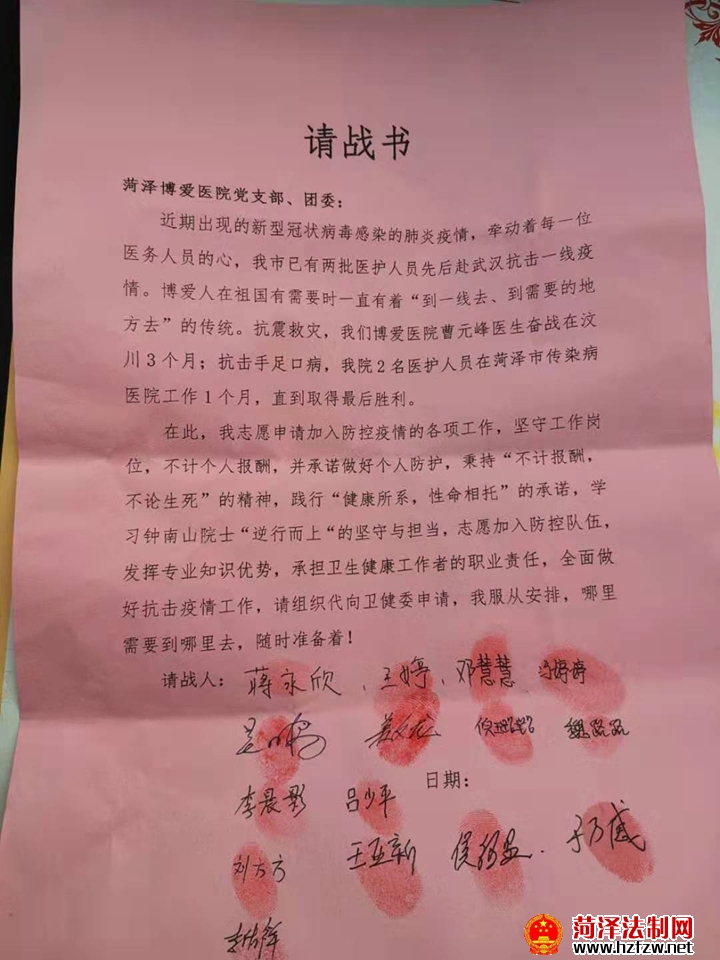 请战书
菏泽博爱医院党支部、团委：
近期出现的新型冠状病毒感染的肺炎疫情，牵动着每一位
医务人员的心，我市已有两批医护人员先后赴武汉抗击一线疫
情。博爱人在祖国有需要时一直有着“到一线去、到需要的地
方去”的传统。抗震救灾，我们博爱医院曹元峰医生奋战在汶
川3个月；抗击手足口病，我院2名医护人员在菏泽市传染病
医院工作1个月，直到取得最后胜利。
在此，我志愿申请加入防控疫情的各项工作，坚守工作岗
位，不计个人报酬，并承诺做好个人防护，秉持“不计报酬，
不论生死”的精神，践行“健康所系，性命相托”的承诺，学
习钟南山院士“逆行而上“的坚守与担当，志愿加入防控队伍，
发挥专业知识优势，承担卫生健康工作者的职业责任，全面做
好抗击疫情工作，请组织代向卫健委申请，我服从安排，哪里
需要到哪里去，随时准备着！
请战人：蒋永欣、王婷、邓慧慧 冯婷婷
魏路路
日期：
李晨影 吕少平
刘方方 王亚新
菏泽法制网
www.hzfzw.net